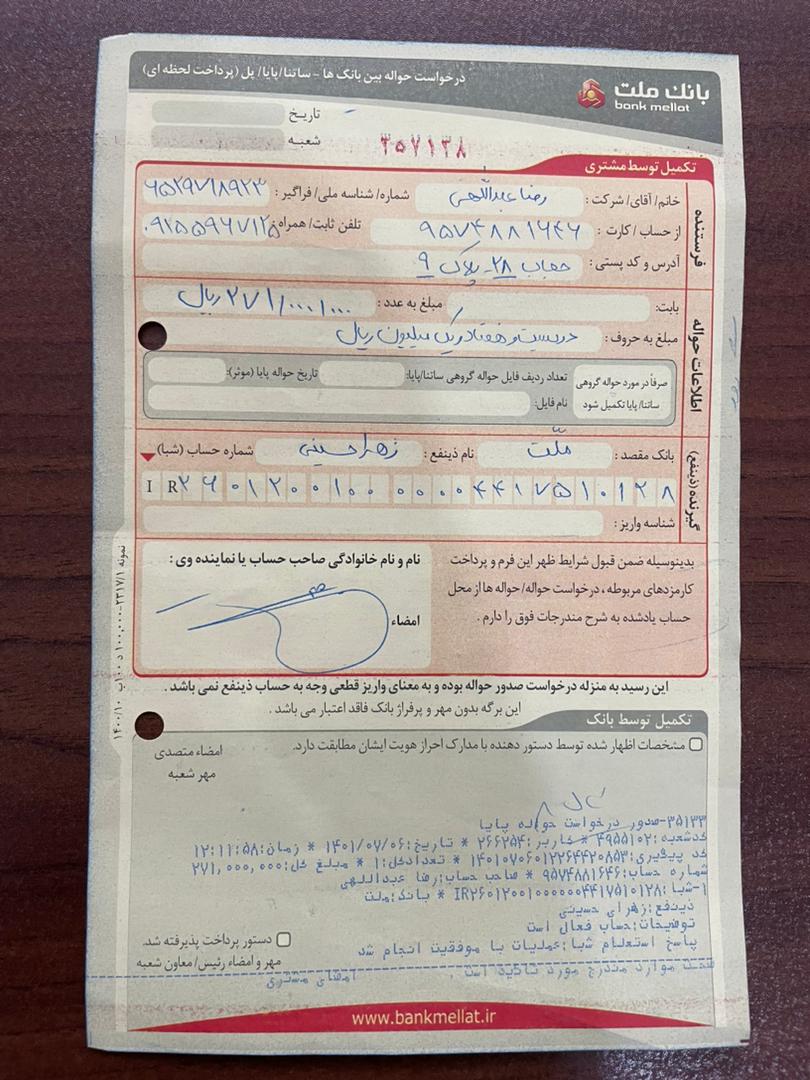 درخواست حواله بین بانک ها - ساتنا/پایا/ پل (پرداخت لحظه ای)
بانک ملت
bank mellat
تاریخ
شعبه
۳۵۷۱۳۸
تکمیل توسط مشتری
فرستنده
خانم/ آقای/ شرکت: رضا عبداللهی شماره/ شناسه ملی/ فراگیر: ۶۵۲۹۷۱۸۹۲۳
از حساب/ کارت: ۹۵۷۴۸۸۱۶۴۶ تلفن ثابت/ همراه: ۰۹۲۵۵۹۶۷۱۲۵
آدرس و کد پستی: حجاب ۲۸- پلاک ۹
اطلاعات حواله
بابت: مبلغ به عدد: ۲۷۱/۰۰۰/۰۰۰ ریال
مبلغ به حروف: دویست و هفتاد و یک میلیون ریال
صرفاً در مورد حواله گروهی ساتنا/ پایا تکمیل شود
تعداد ردیف فایل حواله گروهی ساتنا/پایا: تاریخ حواله پایا (موثر):
نام فایل:
گیرنده (ذینفع)
بانک مقصد: ملّت نام ذینفع: زهرا حسینی شماره حساب (شبا)
I R ۲ ۶ ۰ ۱ ۲ ۰ ۰ ۱ ۰ ۰ ۰ ۰ ۰ ۰ ۴ ۴ ۱ ۷ ۵ ۱ ۰ ۱ ۲ ۸
شناسه واریز:
بدینوسیله ضمن قبول شرایط ظهر این فرم و پرداخت
کارمزدهای مربوطه، درخواست حواله/ حواله ها از محل
حساب یادشده به شرح مندرجات فوق را دارم.
نام و نام خانوادگی صاحب حساب یا نماینده وی:
امضاء
نمونه ۲۳۱۷/۱-۱۰۰,۰۰۰ د ۱۰۰ب ۱۴۰۰/۱۰
این رسید به منزله درخواست صدور حواله بوده و به معنای واریز قطعی وجه به حساب ذینفع نمی باشد.
این برگه بدون مهر و پرفراژ بانک فاقد اعتبار می باشد.
تکمیل توسط بانک
مشخصات اظهار شده توسط دستور دهنده با مدارک احراز هویت ایشان مطابقت دارد.
امضاء متصدی
مهر شعبه
۳۵۱۳۳-صدور درخواست حواله پایا
کدشعبه:۴۹۵۵۱۰۲ * کاربر:۲۶۶۲۵۴ * تاریخ:۱۴۰۱/۰۷/۰۶ * زمان:۱۲:۱۱:۵۸
کد پیگیری:۱۴۰۱۰۷۰۶۰۱۲۲۶۴۴۲۰۸۵۳ * تعدادکل:۱ * مبلغ کل:۲۷۱,۰۰۰,۰۰۰
شماره حساب:۹۵۷۴۸۸۱۶۴۶ * صاحب حساب:رضا عبداللهی
۱-شبا:IR۲۶۰۱۲۰۰۱۰۰۰۰۰۰۴۴۱۷۵۱۰۱۲۸ * بانک:ملت
ذینفع:زهرای حسینی
توضیحات:حساب فعال است
پاسخ استعلام شبا:عملیات با موفقیت انجام شد
صحت موارد مندرج مورد تائید است. امضای مشتری
دستور پرداخت پذیرفته شد.
مهر و امضاء رئیس/ معاون شعبه
www.bankmellat.ir